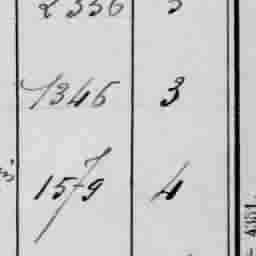 2336 3
1346 3
1579 4
4351